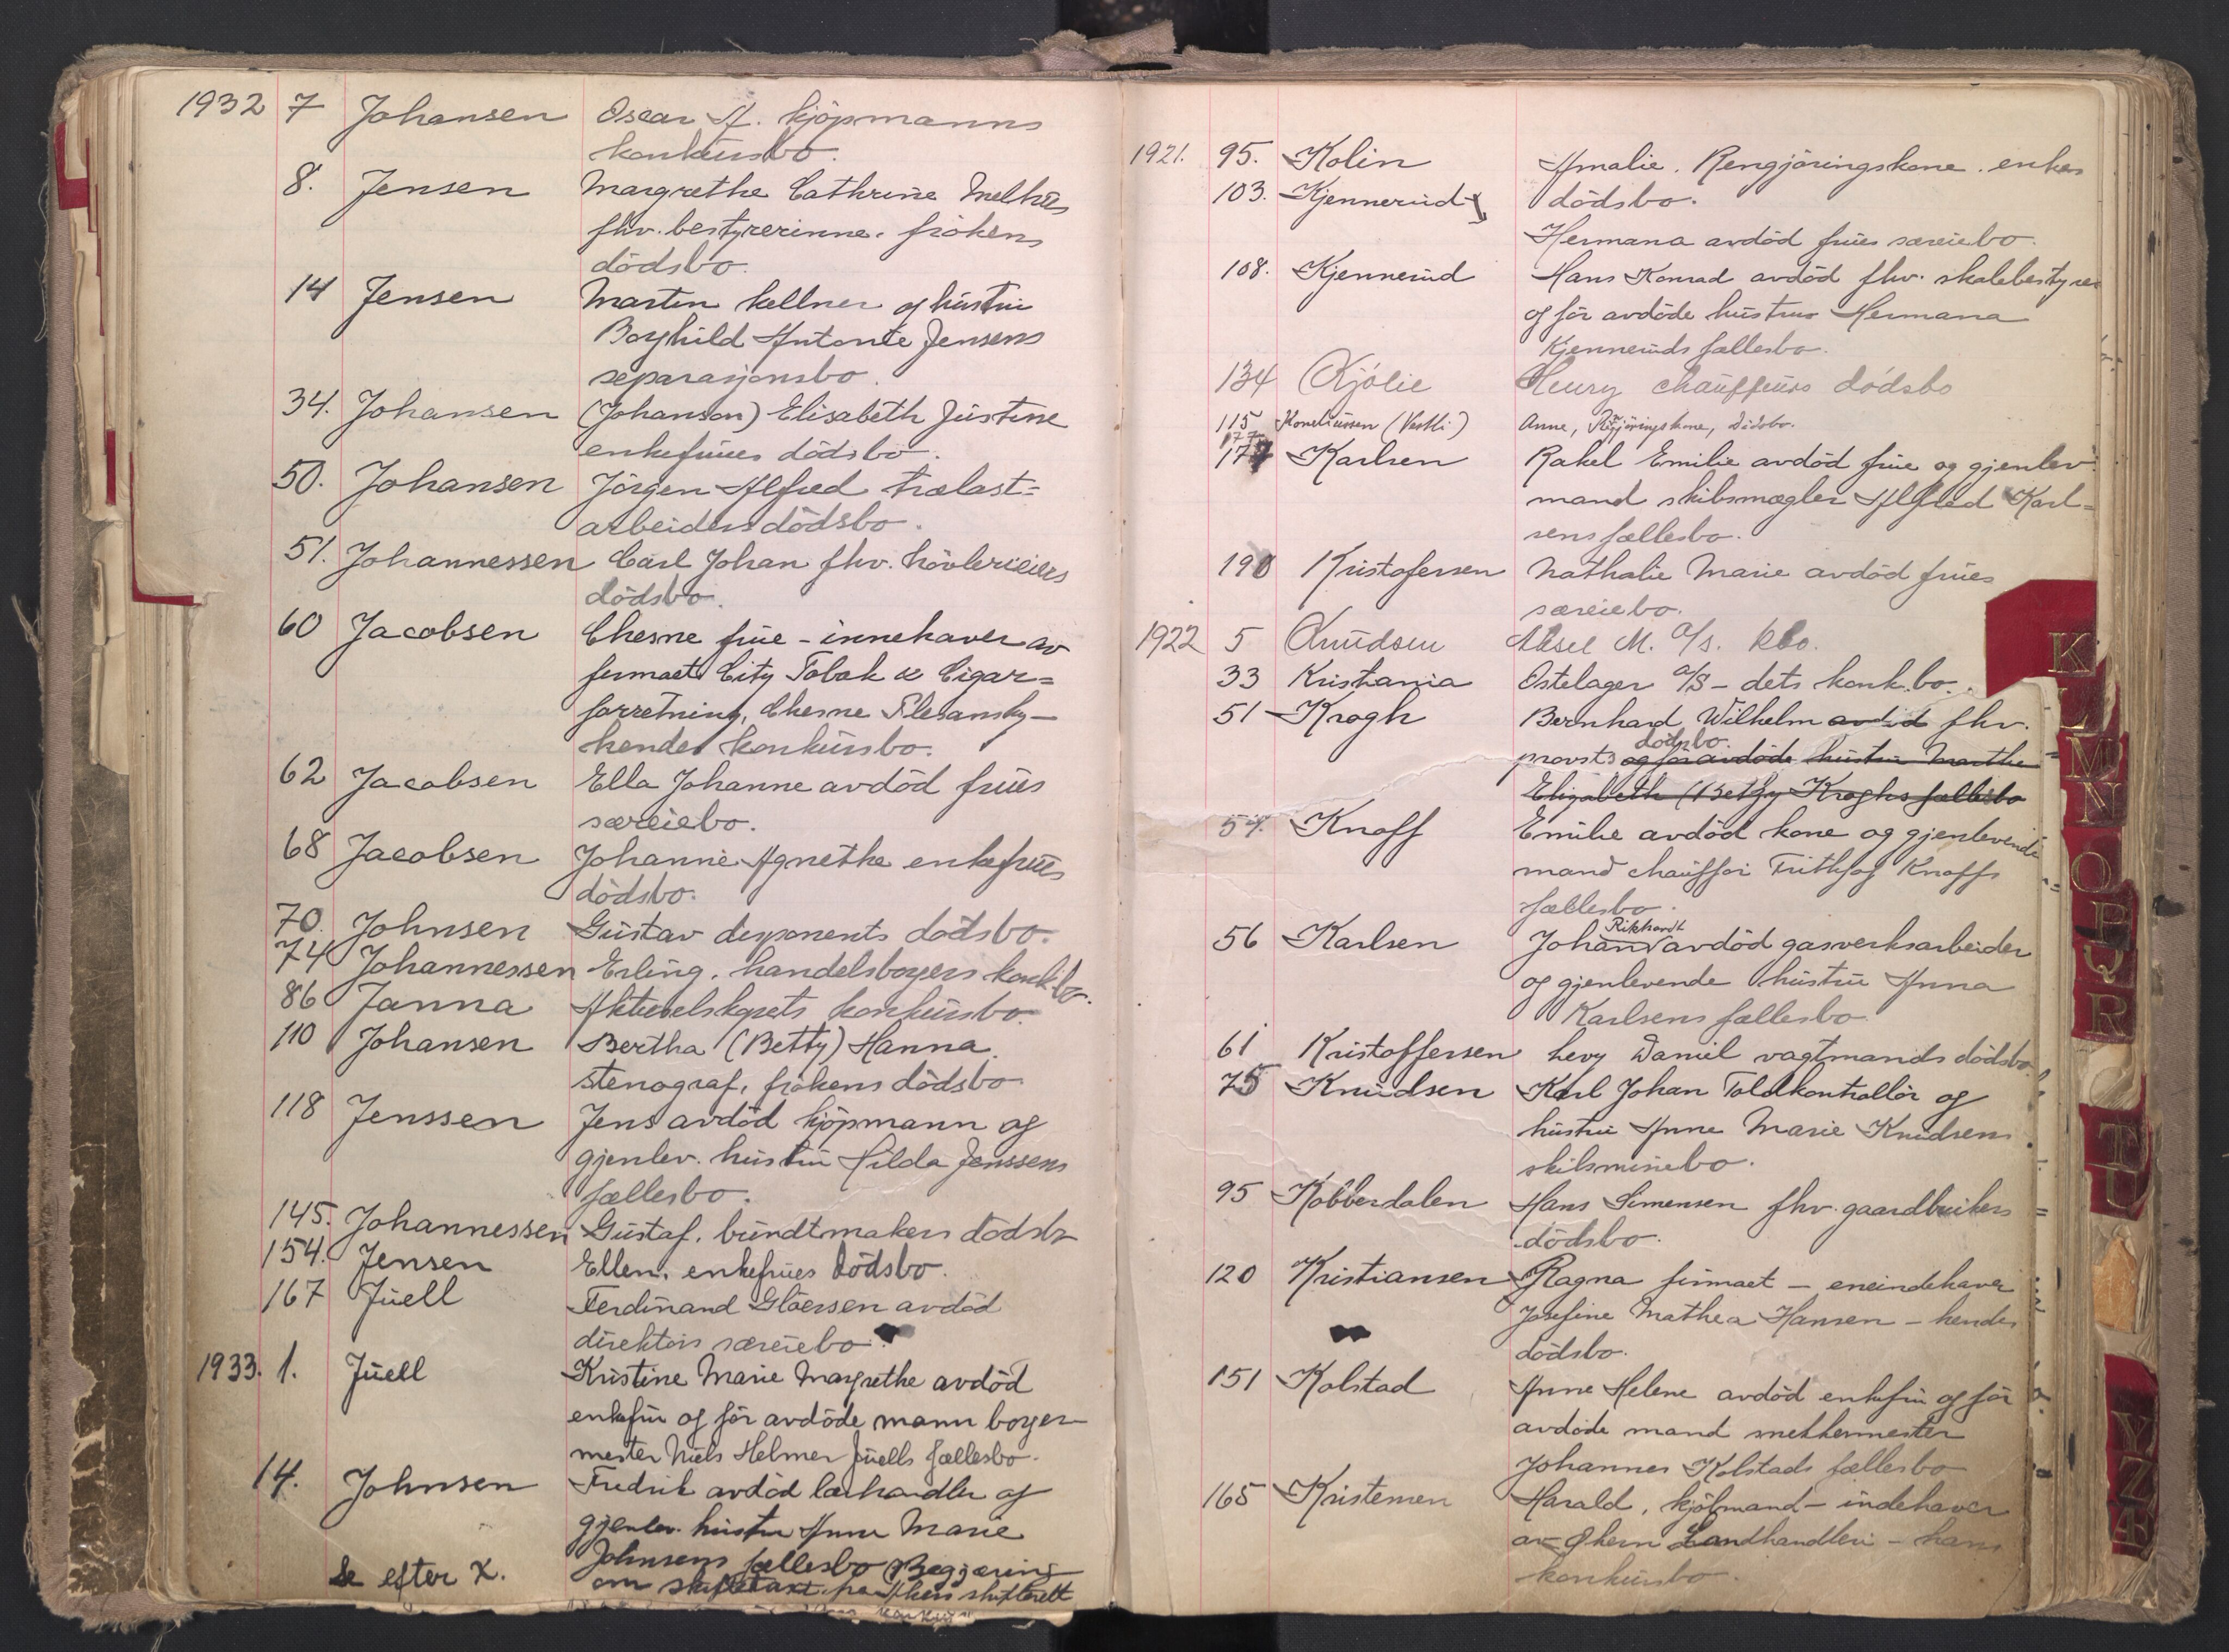 1932 7 Johansen Oscar A. kjöpmanns
konkursbo.
8. Jensen Margrethe Cathrine Melhus
fhv. bestyrerinne. frökens
dödsbo.
14 Jensen Martin kellner og hustru
Borghild Antonie Jensens
separasjonsbo.
34. Johansen (Johanson) Elisabeth Justine
enkefrues dödsbo.
50. Johansen Jörgen Alfred trælast=
arbeiders dödsbo.
51. Johannessen Carl Johan fhv. hövlerieiers
dödsbo.
60 Jacobsen Chesne frue - innehaver av
firmaet City Tobak & Cigar=
forretning, Chesne Plesansky -
hendes konkursbo.
62 Jacobsen Ella Johanne avdöd frues
særeiebo.
68 Jacobsen Johanne Agnethe enkefrues
dödsbo.
70. Johnsen Gustav disponents dödsbo.
74 Johannessen Erling, handelsborgers konk.bo.
86 Janna Aktieselskapets konkursbo.
110 Johansen Bertha (Betty) Hanna.
stenograf, frökens dödsbo
118 Jenssen Jens avdöd kjöpmann og
gjenlev. hustru Hilda Jenssens
fællesbo.
145. Johannessen Gustaf, buntmakers dödsbo
154. Jensen Ellen, enkefrues dödsbo.
167 Juell Ferdinand Gløersen avdöd
direktörs særeiebo.
1933. 1. Juell Kristine Marie Margrethe avdöd
enkefru og för avdöde mann borger-
mester Niels Helmer Juells fællesbo.
14. Johnsen Fredrik avdöd lærhandler og
gjenlev. hustru Anne Marie
Johnsens fællesbo (Begjæring
om skiftetakt. fra Akers skifterett
Se efter X.
1921. 95. Kolin Amalie. Rengjöringskone. enkes
dödsbo.
103. Kjennerud Hermana avdöd frues særeiebo.
108. Kjennerud Hans Konrad avdöd fhv. skolebestyrer
og för avdöde hustrus Hermana
Kjenneruds fællesbo.
134 Kjölie Henry chauffeurs dödsbo
115 Korneliussen (Vestli) Anne, Rengjöringskone, Dödsbo.
177
177 Karlsen Rakel Emilie avdöd frue og gjenlev.
mand skibsmægler Alfred Karl=
sens fællesbo.
190 Kristofersen Nathalie Marie avdöd frues
særeiebo.
1922 5 Knudsen Aksel M. A/S. kbo.
33 Kristiania Ostelager A/S - dets konk.bo.
51 Krogh Bernhard Wilhelm avdöd fhv.
dödsbo.
provsts og för avdöde hustru Marthe
Elizabeth (Betsy Kroghs fællesbo
54. Knoff Emilie avdöd kone og gjenlevende
mand chaufför Frithjof Knoffs
fællesbo.
Rikhardt
56 Karlsen Johan avdöd gasverksarbeider
og gjenlevende hustru Anna
Karlsens fællesbo
61 Kristoffersen Levy Daniel vagtmands dödsbo.
75 Knudsen Karl Johan Toldkontrollör og
hustru Anne Marie Knudsens
skilsmissebo.
95 Kobberdalen Hans Simensen fhv. gaardbrukers
dödsbo.
120 Kristiansen Ragna firmaet - eneindehaver
Josefine Mathea Hansen - hendes
dödsbo.
151 Kolstad Anne Helene avdöd enkefru og för
avdöde mand snekkermester
Johannes Kolstads fællesbo
165 Kristensen Harald, kjöbmand - indehaver
av Økern Landhandleri - hans
konkursbo.
K
L
M
N
O
P
Q
R
T
U
Y
Z
Æ